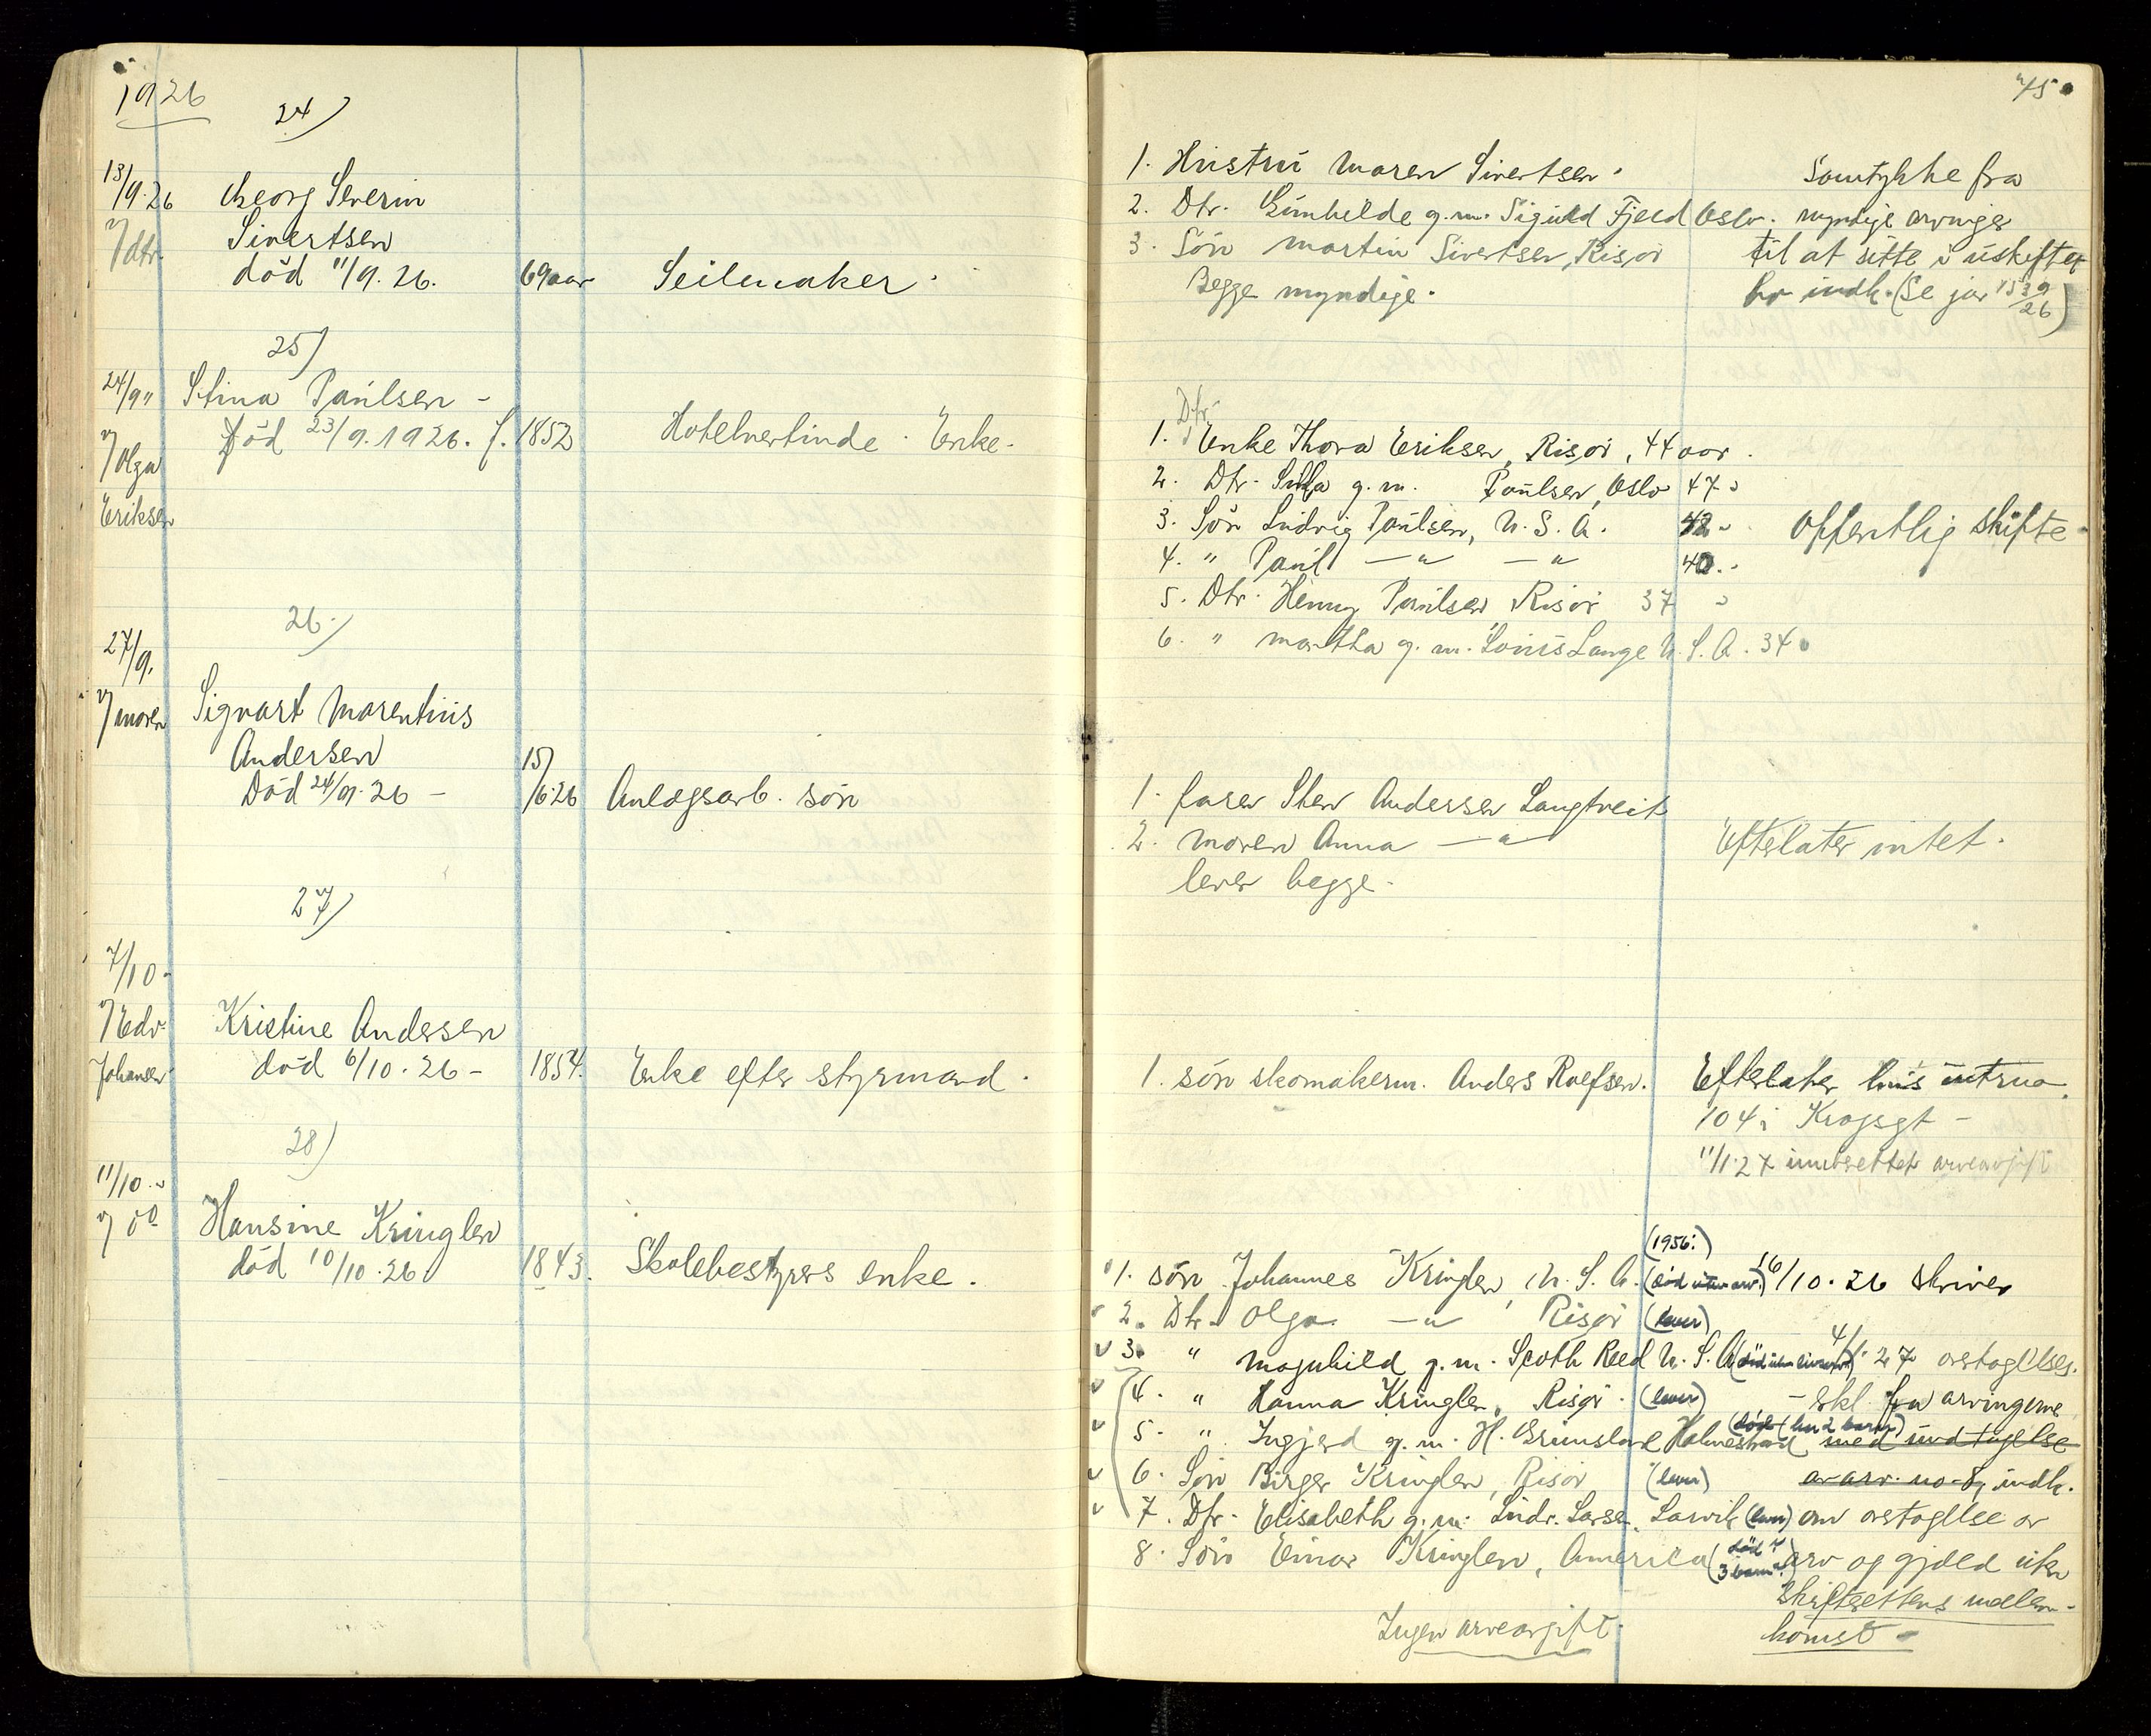 1926
24)
13/9.26
Georg Severin
Sivertsen
død 11/9.26.
v/dtr.
69 aar
Seilmaker.
25)
24/9 "
Stina Paulsen -
Død 23/9.1926. f. 1852
Hotelvertinde. Enke.
v/Olga
Eriksen
26)
27/9.
v/moren
Sigvart Marentius
Andersen
Død 24/9.26 -
15/6.26
Anlægsarb. søn
27)
7/10-
v/Edv.
Johansen
Kristine Andersen
død 6/10.26 -
1854.
Enke efter styrmand.
28)
11/10. "
Hansine Kringlen
død 10/10.26.
1843.
Skolebestyrers enke.
45
1. Hustru Maren Sivertsen.
2. Dtr. Gunhilde g.m. Sigurd Fjeld Oslo.
3. Søn Martin Sivertsen, Risør
Begge myndige.
Samtykke fra
myndige arvinger
til at sitte i uskiftet
bo indk. (Se jor 1539/26)
Dtr.
1. Enke Thora Eriksen, Risør, 44 aar.
2. Dtr. g.m. Paulsen, Oslo 47 "
3. Søn Ludvig Paulsen, U.S.A. 42 "
4. " Paul — " — — " — 40. "
5. Dtr. Henny Paulsen Risør 37 "
6. " Martha g.m. Louis Lange U.S.A. 34
Offentlig skifte -
1. faren Sten Andersen Langtveit
2. moren Anna — " —
lever begge.
Efterlater intet.
1. søn skomakerm. Anders Roefsen.
Efterlater hus
104 i Kragsgt -
11/1.27 innberettet arveavgift
1. søn Johannes Kringlen, U.S.A. (1956:) (død uten arv.)
2. Dtr. Olga — " — Risør (lever)
3. " Magnhild g.m. Scoth Reed U.S.A.
4. " Hanna Kringlen, Risør. (lever)
5. " Ingjerd g.m. H. Grimsland Holmestrand (død (hu 2 barn))
6. Søn Birger Kringlen, Risør (lever)
7. Dtr. Elisabeth g.m. Ludv. Larsen, Larvik (lever)
8. Søn Einar Kringlen, America (død? 3 barn?)
16/10.26 skriver
4/1.27 overtagelses.
- erkl. fra arvingerne
med undtagelse
av arv. no. 8, indk.
om overtagelse av
arv og gjæld uten
skifterettens mellem-
komst -
Ingen arveavgift.